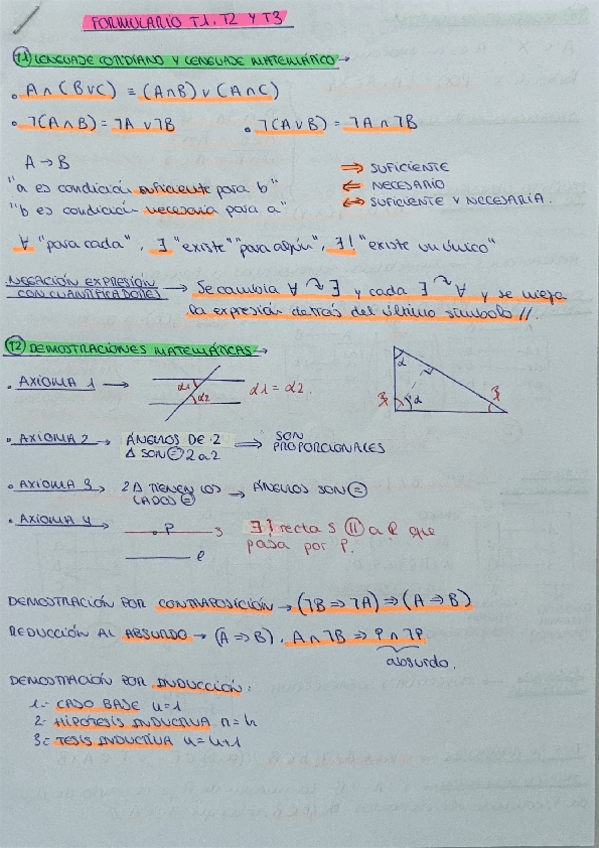 FORMULARIO T1, T2 Y T3
T1) LENGUAJE COTIDIANO Y LENGUAJE MATEMÁTICO →
• A ∧ (B ∨ C) ≡ (A ∧ B) ∨ (A ∧ C)
• ¬(A ∧ B) = ¬A ∨ ¬B • ¬(A ∨ B) = ¬A ∧ ¬B
A → B
⇒ SUFICIENTE
"a es condición suficiente para b"
⇐ NECESARIO
"b es condición necesaria para a"
⇔ SUFICIENTE Y NECESARIA.
∀ "para cada", ∃ "existe" "para algún", ∃! "existe un único"
NEGACIÓN EXPRESIÓN CON CUANTIFICADORES → Se cambia ∀ ↷ ∃ y cada ∃ ↷ ∀ y se niega
la expresión detrás del último símbolo //.
T2) DEMOSTRACIONES MATEMÁTICAS →
• AXIOMA 1 → α1 α2 α1 = α2.
α α
• AXIOMA 2 → ÁNGULOS DE 2 ⇒ SON
Δ SON = 2 a 2 PROPORCIONALES
• AXIOMA 3 → 2Δ TIENEN LOS → ÁNGULOS SON =
LADOS =
• AXIOMA 4 → P s ∃! recta s || a l que
l pasa por P.
DEMOSTRACIÓN POR CONTRAPOSICIÓN → (¬B ⇒ ¬A) ⇒ (A ⇒ B)
REDUCCIÓN AL ABSURDO → (A ⇒ B). A ∧ ¬B ⇒ P ∧ ¬P
absurdo.
DEMOSTRACIÓN POR INDUCCIÓN:
1.- CASO BASE n=1
2- HIPÓTESIS INDUCTIVA n=k
3.- TESIS INDUCTIVA n=k+1